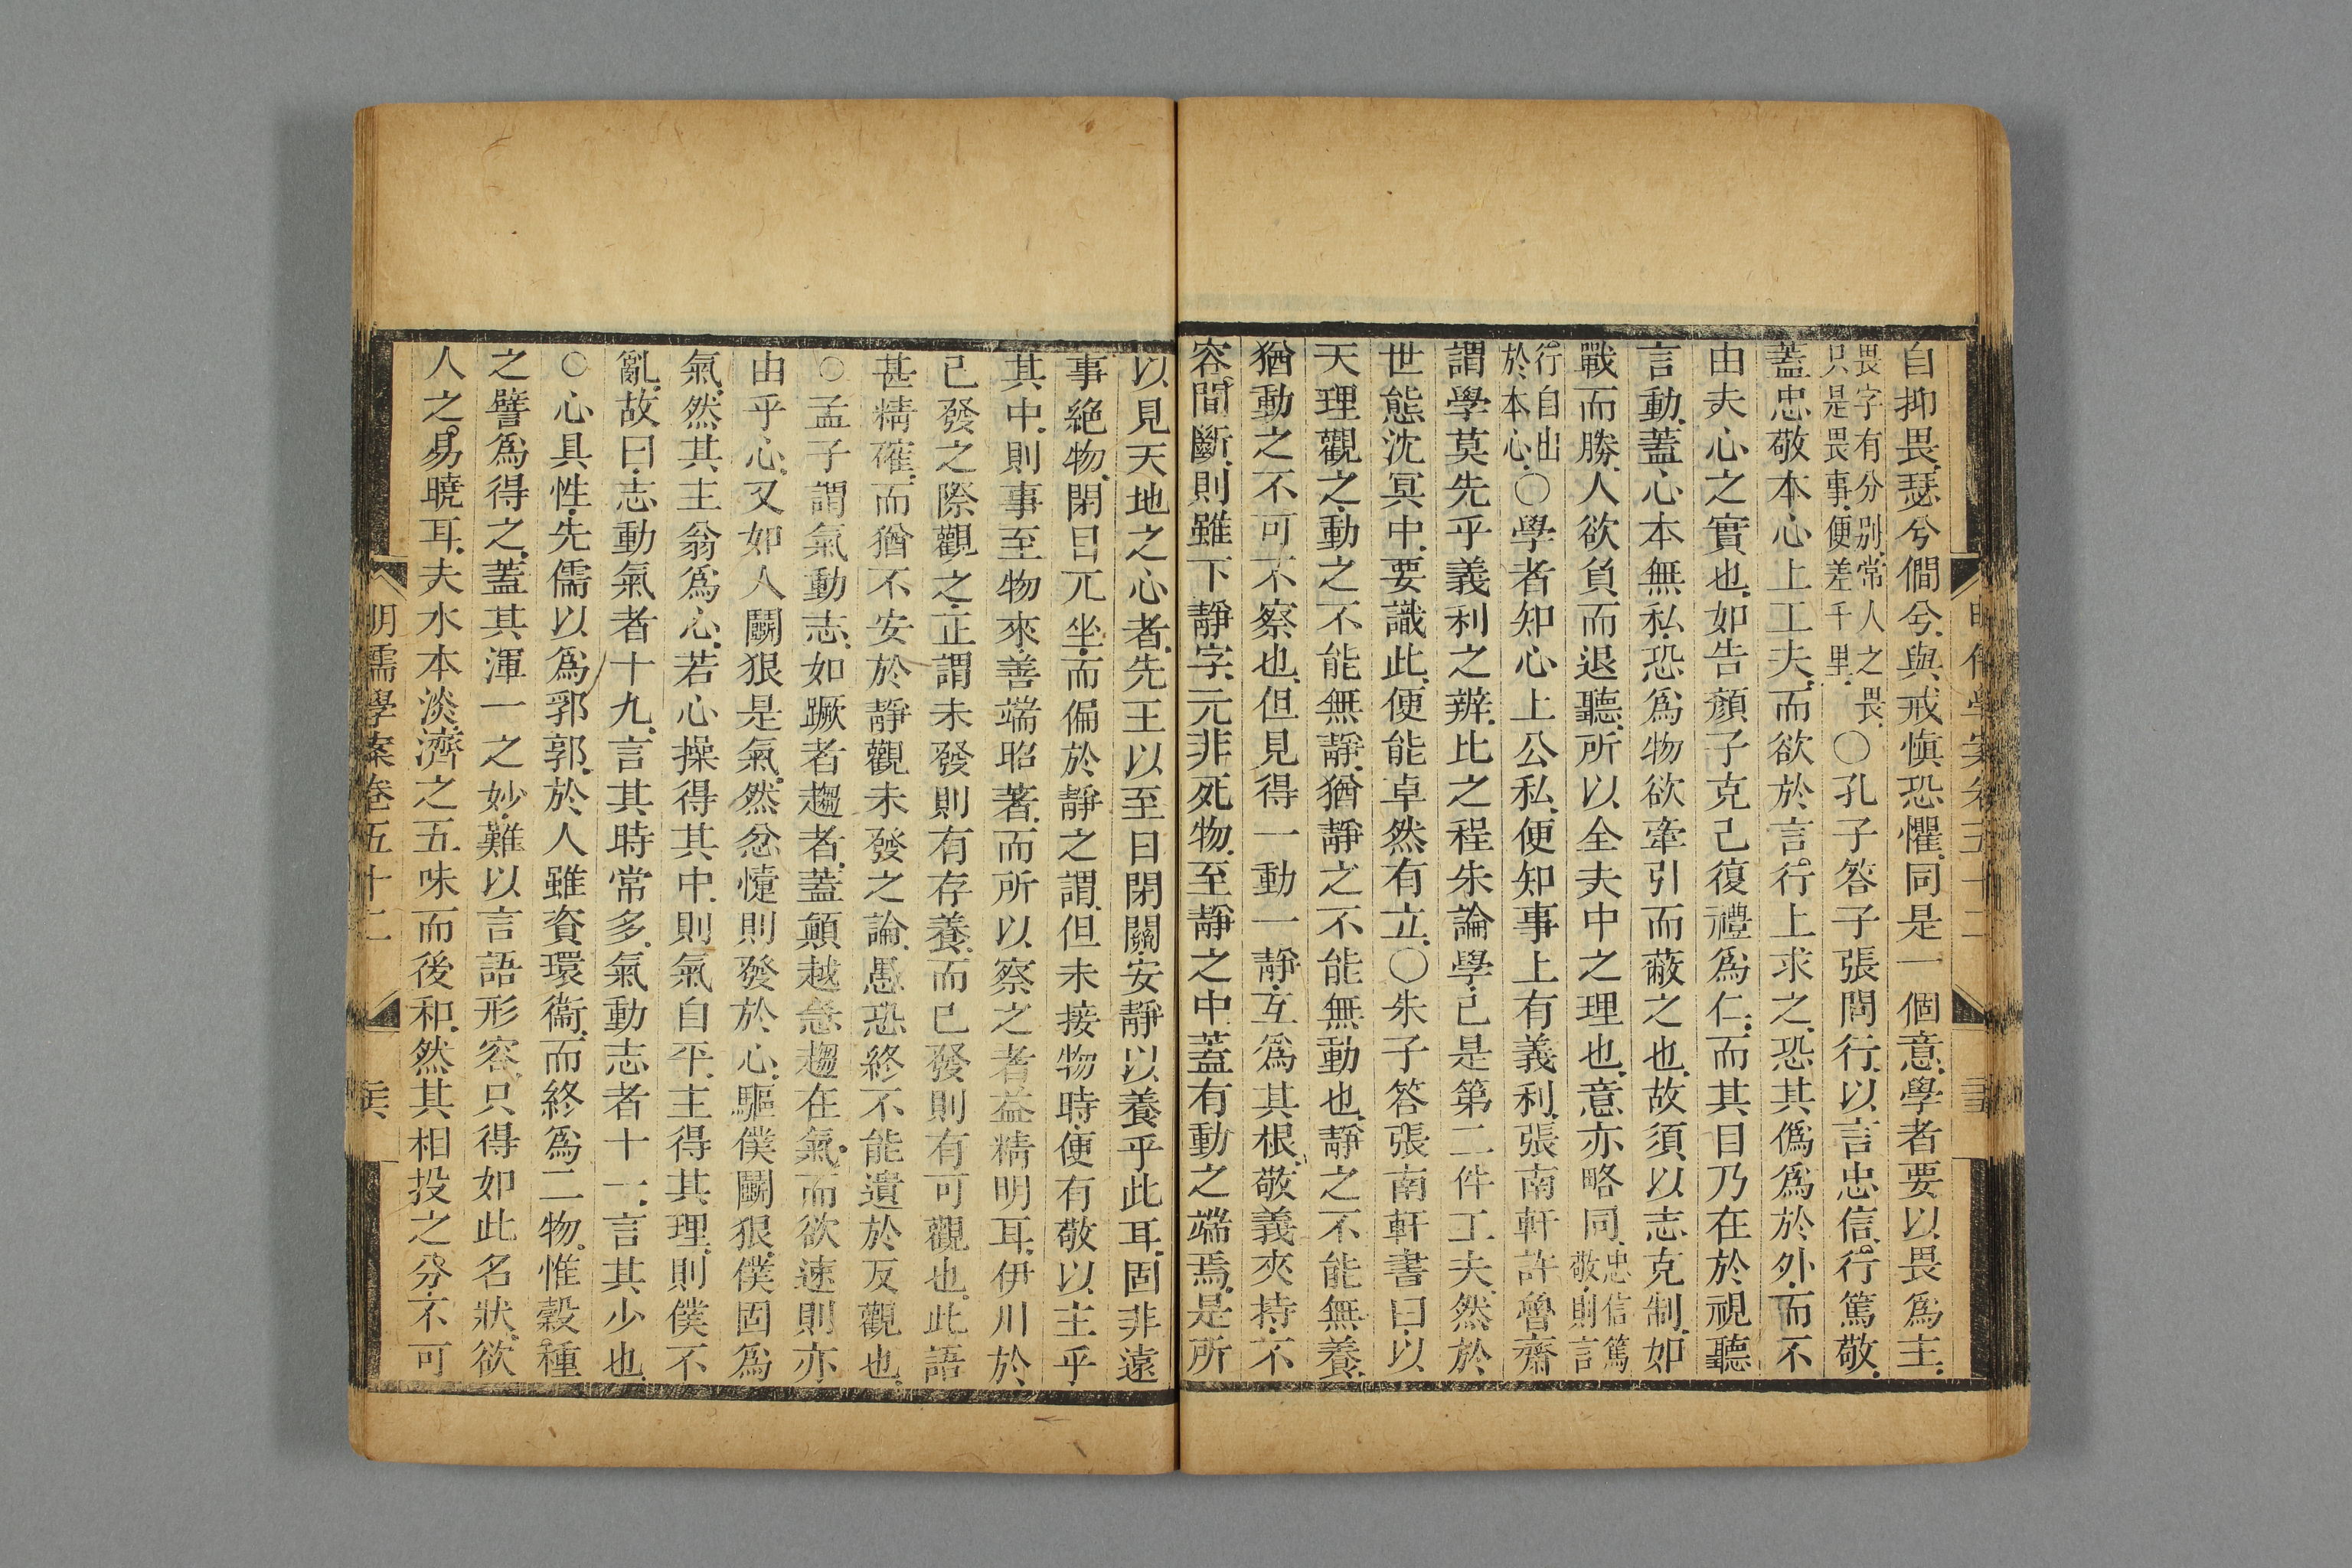 自抑畏瑟兮僩兮與戒慎恐懼同是一個意學者要以畏爲主
畏字有分別常人之畏
只是畏事便差千里
○孔子答子張問行以言忠信行篤敬
蓋忠敬本心上工夫而欲於言行上求之恐其僞爲於外而不
由夫心之實也如告顏子克己復禮爲仁而其目乃在於視聽
言動蓋心本無私恐爲物欲牽引而蔽之也故須以志克制如
戰而勝人欲負而退聽所以全夫中之理也意亦略同
忠信篤
敬則言
行自出
於本心
○學者知心上公私便知事上有義利張南軒許魯齋
謂學莫先乎義利之辨比之程朱論學已是第二件工夫然於
世態沈冥中要識此便能卓然有立○朱子答張南軒書曰以
天理觀之動之不能無靜猶靜之不能無動也靜之不能無養
猶動之不可不察也但見得一動一靜互爲其根敬義夾持不
容間斷則雖下靜字元非死物至靜之中蓋有動之端焉是所
以見天地之心者先王以至日閉關安靜以養乎此耳固非遠
事絶物閉目兀坐而偏於靜之謂但未接物時便有敬以主乎
其中則事至物來善端昭著而所以察之者益精明耳伊川於
已發之際觀之正謂未發則有存養而已發則有可觀也此語
甚精確而猶不安於靜觀未發之論愚恐終不能遺於反觀也
○孟子謂氣動志如蹶者趨者蓋顛越急趨在氣而欲速則亦
由乎心又如人鬬狠是氣然忿懥則發於心驅僕鬬狠僕固爲
氣然其主翁爲心若心操得其中則氣自平主得其理則僕不
亂故曰志動氣者十九言其時常多氣動志者十一言其少也
○心具性先儒以爲郛郭於人雖資環衞而終爲二物惟穀種
之譬爲得之蓋其渾一之妙難以言語形容只得如此名狀欲
人之易曉耳夫水本淡濟之五味而後和然其相投之分不可
明儒學案卷五十二